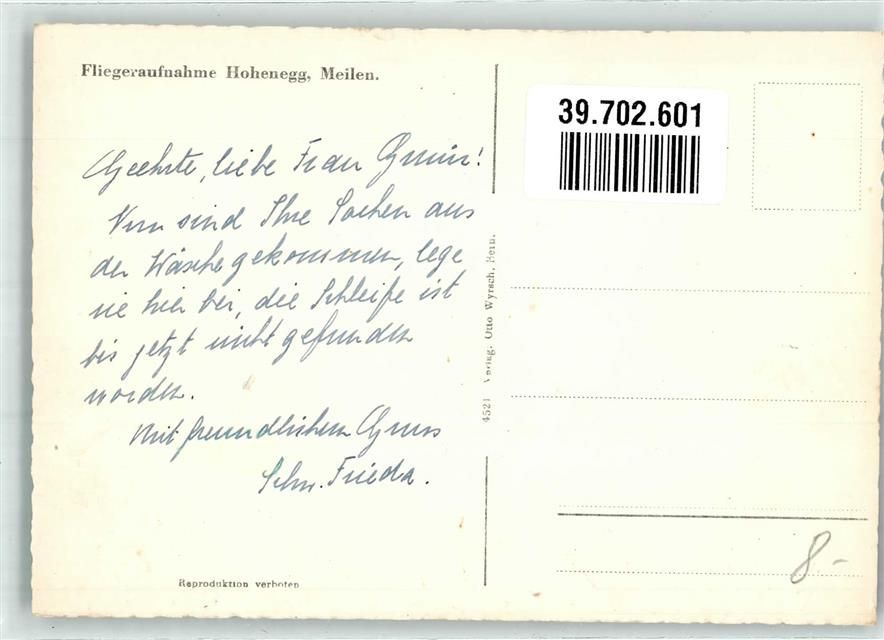 Fliegeraufnahme Hohenegg, Meilen.
Geehrte, liebe Frau Gmür!
Nun sind Ihre Sachen aus
der Wäsche gekommen, lege
sie hier bei, die Schleife ist
bis jetzt nicht gefunden
worden.
Mit freundlichem Gruss
Schw. Frieda.
Reproduktion verboten
4521 Verlag. Otto Wyrsch, Bern.
39.702.601
8.-